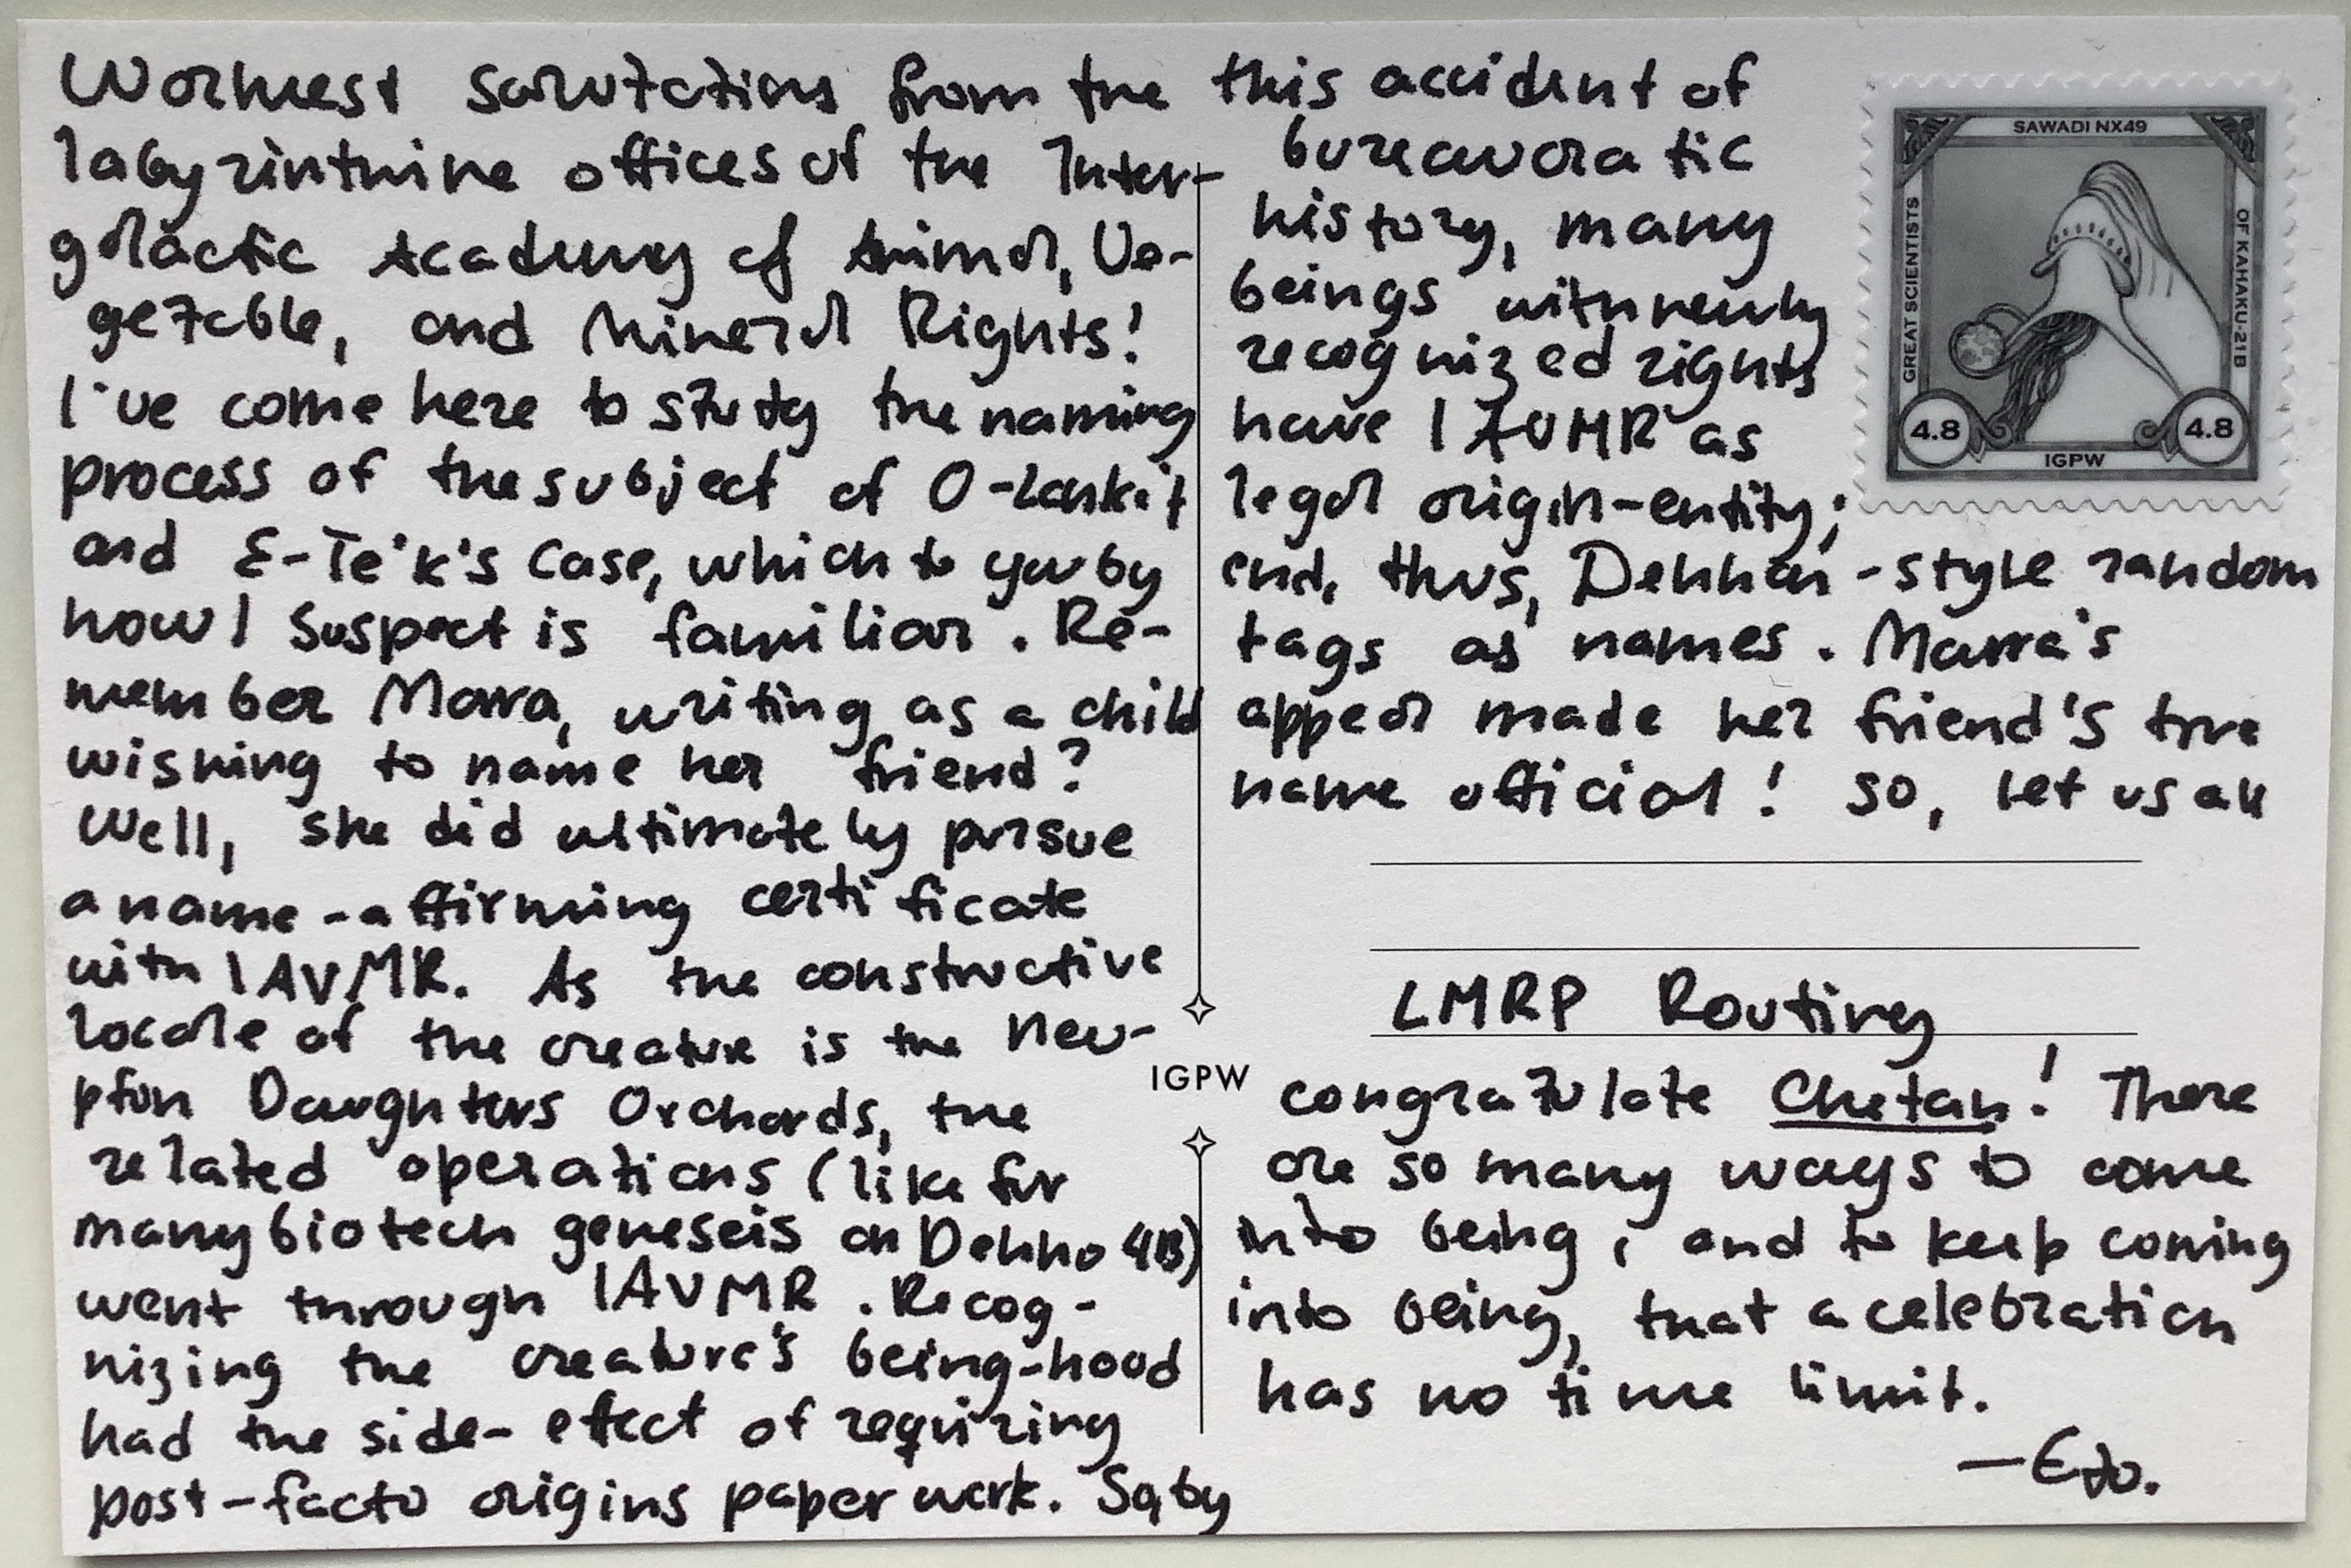 Warmest salutations from the
labyrinthine offices of the Inter-
galactic Academy of Animal, Ve-
getable, and Mineral Rights!
I've come here to study the naming
process of the subject of O-Lankit
and E-Te'k's case, which to you by
now I suspect is familiar. Re-
member Marra, writing as a child
wishing to name her friend?
Well, she did ultimately pursue
a name-affirming certificate
with IAVMR. As the constructive
locale of the creature is the New-
pton Daughters Orchards, the
related operations (like for
many biotech geneseis on Dehno 4B)
went through IAVMR. Recog-
nizing the creature's being-hood
had the side-effect of requiring
post-facto origins paperwork. So, by
this accident of
bureaucratic
history, many
beings with newly
recognized rights
have IAVMR as
legal origin-entity;
and, thus, Dehnan-style random
tags as names. Marra's
appeal made her friend's true
name official! So, let us all
LMRP Routing
congratulate Chetan! There
are so many ways to come
into being, and to keep coming
into being, that a celebration
has no time limit.
—Ezo.
IGPW
SAWADI NX49
GREAT SCIENTISTS
OF KAHAKU-21B
4.8
4.8
IGPW